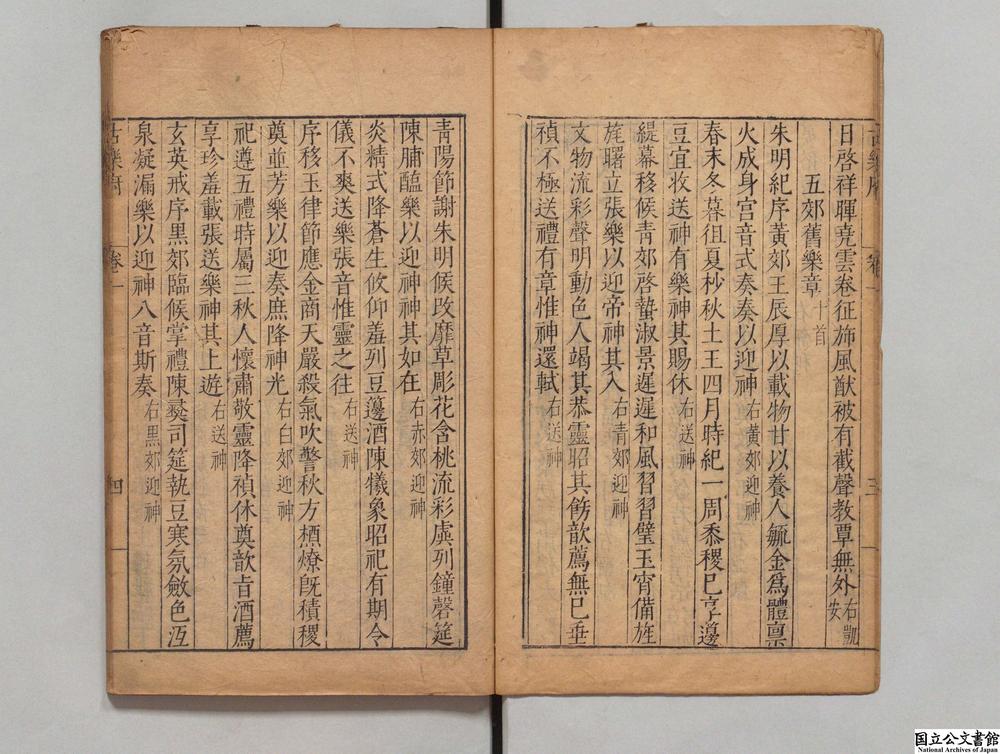 日啓祥暉堯雲卷征斾風猷被有截聲敎覃無外右凱安
五郊舊樂章十首
朱明紀序黃郊王辰厚以載物甘以養人毓金爲體稟
火成身宮音式奏奏以迎神右黃郊迎神
春末冬暮徂夏杪秋土王四月時紀一周黍稷巳享籩
豆宜收送神有樂神其賜休右送神
緹幕移候青郊啓蟄淑景遲遲和風習習璧玉宵備旌
旄曙立張樂以迎帝神其入右青郊迎神
文物流彩聲明動色人竭其恭靈昭其飭歆薦無巳垂
禎不極送禮有章惟神還軾右送神
三
青陽節謝朱明候改靡草彫花含桃流彩虡列鐘磬筵
陳脯醢樂以迎神神其如在右赤郊迎神
炎精式降蒼生攸仰羞列豆籩酒陳犧象昭祀有期令
儀不爽送樂張音惟靈之往右送神
序移玉律節應金商天嚴殺氣吹警秋方槱燎旣積稷
奠並芳樂以迎奏庶降神光右白郊迎神
祀遵五禮時屬三秋人懷肅敬靈降禎休奠歆旨酒薦
享珍羞載張送樂神其上遊右送神
玄英戒序黑郊臨候掌禮陳彝司筵執豆寒氛斂色沍
泉凝漏樂以迎神八音斯奏右黑郊迎神
古樂府 卷一 四